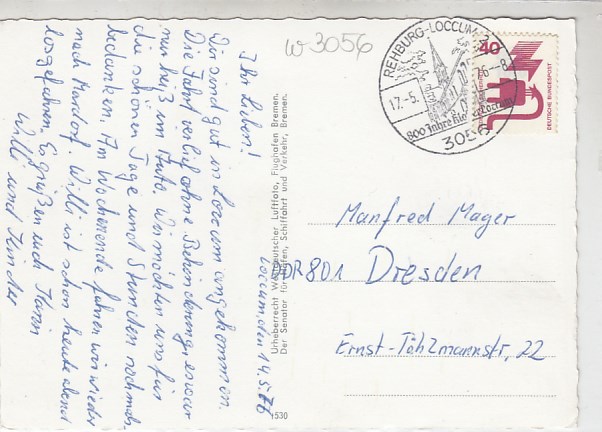 w 3056
REHBURG-LOCCUM
17.-5. 76-8
800 Jahre Kloster Loccum
3056
40
DEUTSCHE BUNDESPOST
Ihr Lieben!
Wir sind gut in Loccum angekommen.
Die Fahrt verlief ohne Behinderung, es war
nur heiß im Auto. Wir möchten uns für
die schönen Tage und Stunden nochmals
bedanken. Am Wochenende fahren wir wieder
nach Mardorf. Willi ist schon heute abend
losgefahren. Es grüßen euch Karin
Willi und Kinder
Loccum, den 14.5.76
Urheberrecht Westdeutscher Luftfoto, Flughafen Bremen.
Der Senator für Häfen, Schiffahrt und Verkehr, Bremen.
1530
Manfred Mager
DDR 801 Dresden
Ernst-Thälmannstr, 22